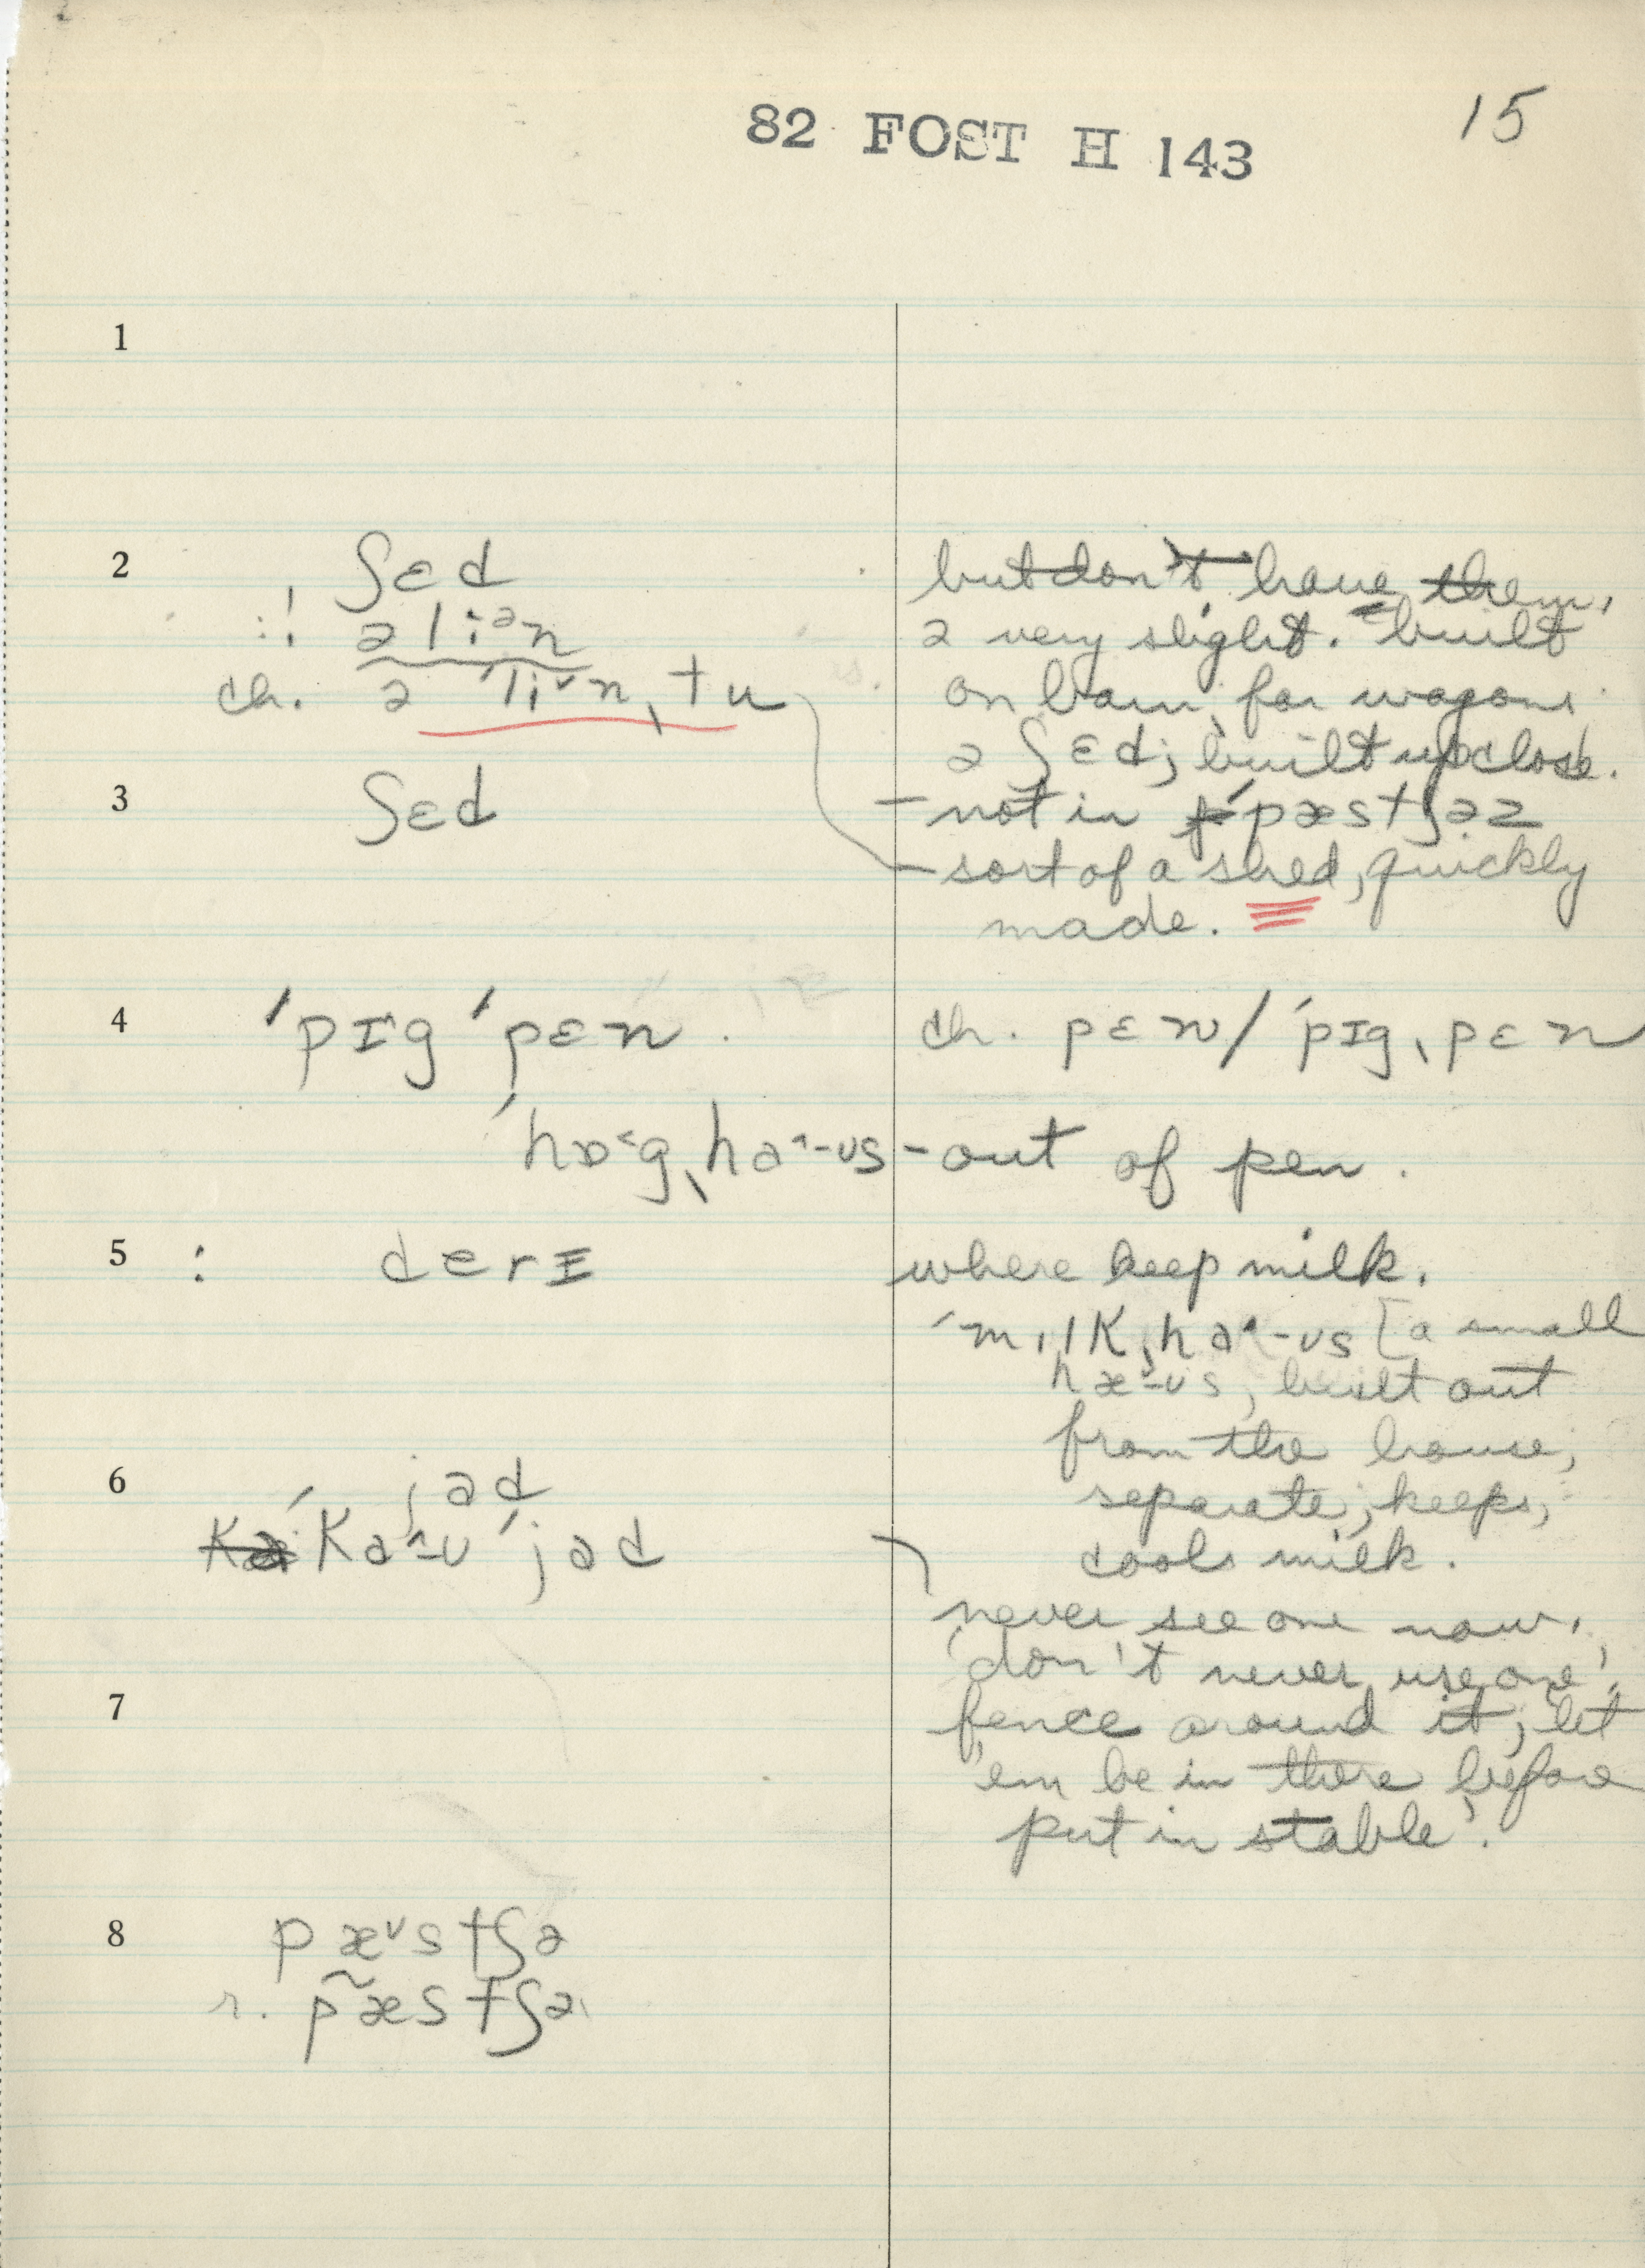 82 FOST H 143
15
1
2
ʃɛd
but don't have them,
:! ə li:ᵊn
ə very slight. built
ch. ə ˈli˅nˌtu
on barn, for wagons
ə ʃɛd; built up close.
3
ʃɛd
– not in ˈpæstʃəz
– sort of a shed, quickly
made.
4
ˈpɪgˈpɛn.
ch. pɛn/ˈpɪgˌpɛn
ˈhɒ˂gˌha^-ʊs – out of pen.
5
: derɪ
where keep milk.
ˈmɪlkˌha^-ʊs [a small
hæ-ʊs, built out
from the house,
separate; keeps,
cools milk.
6
jad
ˈka^-ʊˈjad
never see one now.
'don't never use one'.
7
fence around it, let
'em be in there before
put in stable'.
8
pæ˅stʃə
r. pæstʃə